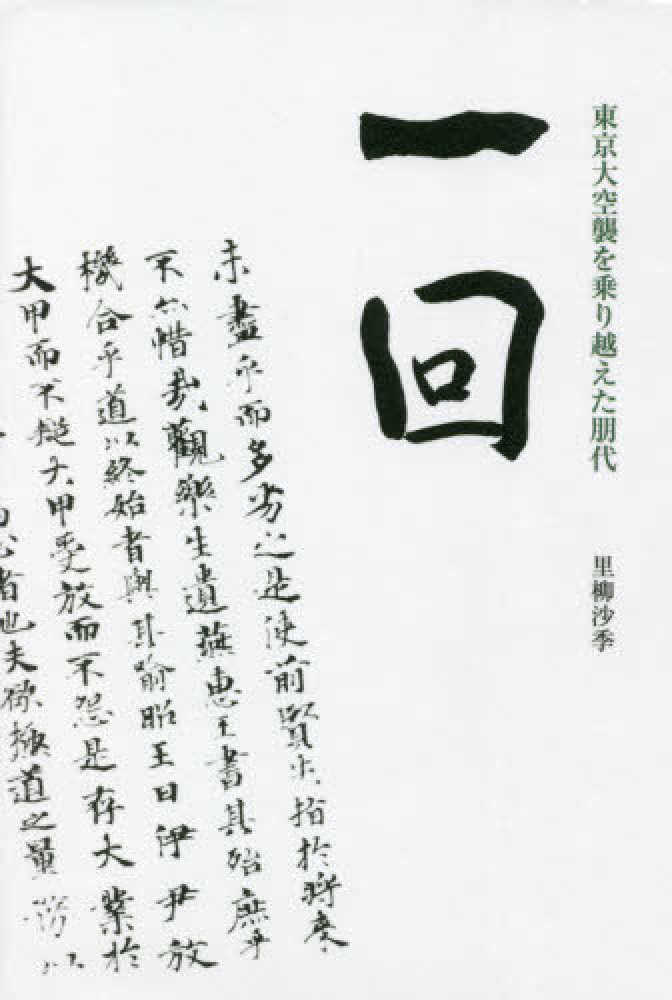 東京大空襲を乗り越えた朋代
里柳沙季
一回
未盡乎而多劣之是使前賢失指於將來
不亦惜哉觀樂生遺燕惠王書其殆庶乎
機合乎道以終始者與其喻昭王曰伊尹放
大甲而不疑大甲受放而不怨是存大業於
心者也夫欲極道之量務以